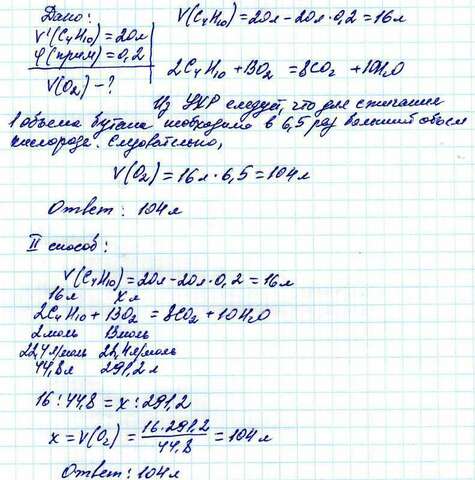 Дано:
V'(C₄H₁₀) = 20л
φ(прим) = 0,2
V(O₂) - ?
V(C₄H₁₀) = 20л - 20л · 0,2 = 16л
2C₄H₁₀ + 13O₂ = 8CO₂ + 10H₂O
Из УХР следует, что для сжигания
1 объема бутана необходимо в 6,5 раз больший объем
кислорода. Следовательно,
V(O₂) = 16л · 6,5 = 104л
Ответ: 104л
II способ:
V(C₄H₁₀) = 20л - 20л · 0,2 = 16л
16л хл
2C₄H₁₀ + 13O₂ = 8CO₂ + 10H₂O
2моль 13моль
22,4л/моль 22,4л/моль
44,8л 291,2л
16 : 44,8 = х : 291,2
х = V(O₂) = 16 · 291,2 / 44,8 = 104л
Ответ: 104л